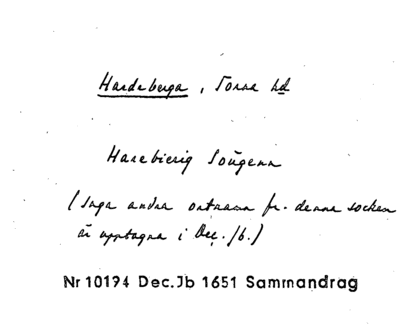 Hardeberga, Torna hd
Harebierig Soŭgenn
(Inga andra ortnamn fr. denna socken
är upptagna i Dec. Jb.)
Nr 10194 Dec.Jb 1651 Sammandrag